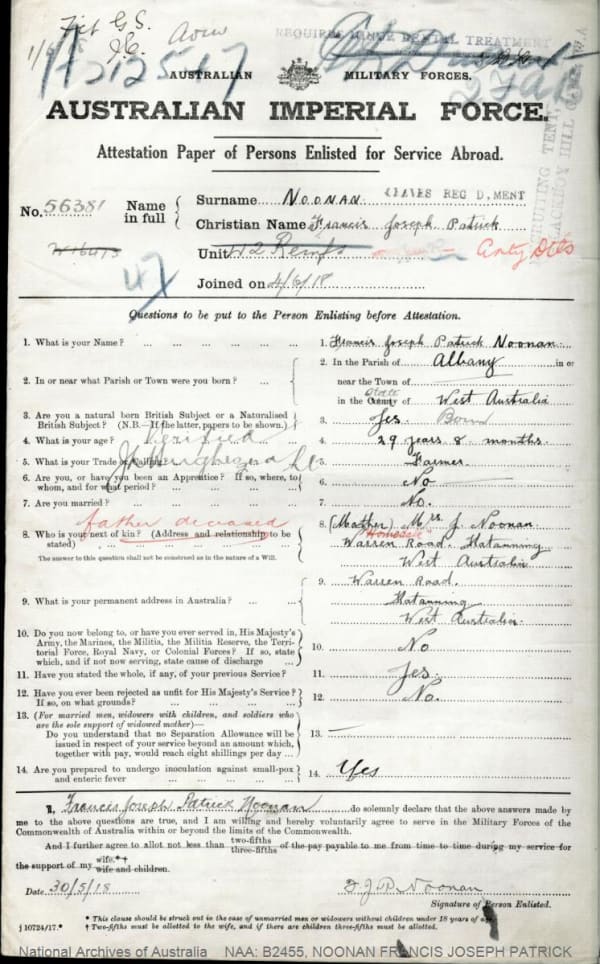 Fit G S
REQUIRES MINOR DENTAL TREATMENT
AUSTRALIAN MILITARY FORCES.
AUSTRALIAN IMPERIAL FORCE.
Attestation Paper of Persons Enlisted for Service Abroad.
No. 56381
Name in full
Surname NOONAN
Christian Name Francis Joseph Patrick
Unit Reinfs
Joined on 4/6/18
Questions to be put to the Person Enlisting before Attestation.
1. What is your Name? 1. Francis Joseph Patrick Noonan
2. In or near what Parish or Town were you born? 2. In the Parish of Albany in or
near the Town of
in the County of State West Australia
3. Are you a natural born British Subject or a Naturalised
British Subject? (N.B.—If the latter, papers to be shown.) 3. Yes Born
4. What is your age? Verified 4. 29 years 8 months.
5. What is your Trade or Calling? 5. Farmer.
6. Are you, or have you been an Apprentice? If so, where, to
whom, and for what period? 6. No
7. Are you married? 7. No.
father deceased
8. Who is your next of kin? (Address and relationship to be
stated) 8. (Mother) Mrs J. Noonan
Warren Road. Katanning
West Australia
The answer to this question shall not be construed as in the nature of a Will.
9. What is your permanent address in Australia? 9. Warren Road.
Katanning
West Australia.
10. Do you now belong to, or have you ever served in, His Majesty's
Army, the Marines, the Militia, the Militia Reserve, the Terri-
torial Force, Royal Navy, or Colonial Forces? If so, state
which, and if not now serving, state cause of discharge 10. No
11. Have you stated the whole, if any, of your previous Service? 11. Yes.
12. Have you ever been rejected as unfit for His Majesty's Service?
If so, on what grounds? 12. No.
13. (For married men, widowers with children, and soldiers who
are the sole support of widowed mother)—
Do you understand that no Separation Allowance will be
issued in respect of your service beyond an amount which,
together with pay, would reach eight shillings per day 13. —
14. Are you prepared to undergo inoculation against small-pox
and enteric fever 14. Yes
I, Francis Joseph Patrick Noonan do solemnly declare that the above answers made by
me to the above questions are true, and I am willing and hereby voluntarily agree to serve in the Military Forces of the
Commonwealth of Australia within or beyond the limits of the Commonwealth.
And I further agree to allot not less than two-fifths three-fifths of the pay payable to me from time to time during my service for
the support of my wife.*† wife and children.
Date 30/5/18
F. J. P. Noonan
Signature of Person Enlisted.
* This clause should be struck out in the case of unmarried men or widowers without children under 18 years of age.
† Two-fifths must be allotted to the wife, and if there are children three-fifths must be allotted.
j 10724/17.*
National Archives of Australia NAA: B2455, NOONAN FRANCIS JOSEPH PATRICK